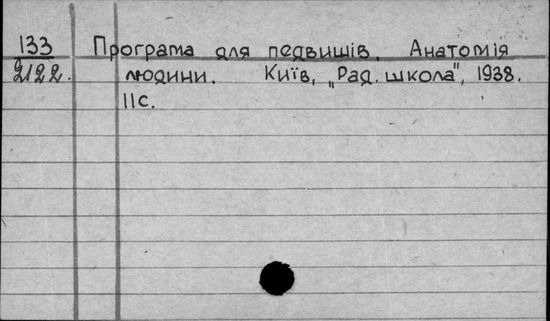 133 Програма для педвишів. Анатомія
2122. людини. Київ, „Рад. школа", 1938.
11с.